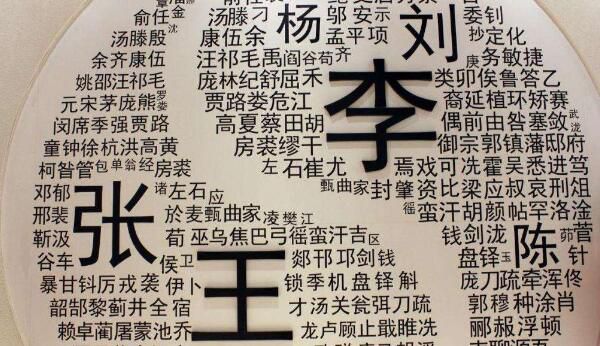 俞任金 沈
汤滕刁
杨
邬安示
刘
委钊
汤滕殷
康伍余
孟平项
抄定化
余齐康伍
汪祁毛禹阎谷茹齐
庚务敏捷
姚邵汪祁毛
庞林纪舒屈禾
李
类卯俟鲁答乙
元宋茅庞熊
贾路娄危江
裔延植环矫赛
闵席季强贾路
高夏蔡田胡
偶前由昝塞敛
童钟徐杭洪高黄
房裘缪干
御宗郭镇藩邸府
柯昝管包单翁经房裘
左石崔尤
焉戏可冼霍吴悉进笃
邓郁
张
诸左石应
甄曲家封肇资比梁应叔哀刑俎
邢裴
於麻甄曲家凌樊江
徭蛮汗胡颜帖罕洛淦
靳汲
荀巫乌焦巴弓徭蛮汗吉区
钱剑泷
陈
茆菅
谷车
侯卫
王
郯邗邛剑钱
盘铎玉
针
暴甘钭厉戎袭
伊卜
锁季机盘铎斛
庞刀疏牵浑佟
韶郜黎蓟井全宿
才汤关瓮弭刀疏
郭穆种涂肖
赖卓蔺屠蒙池乔
龙卢顾止戢睢冼
郦郝浮顿